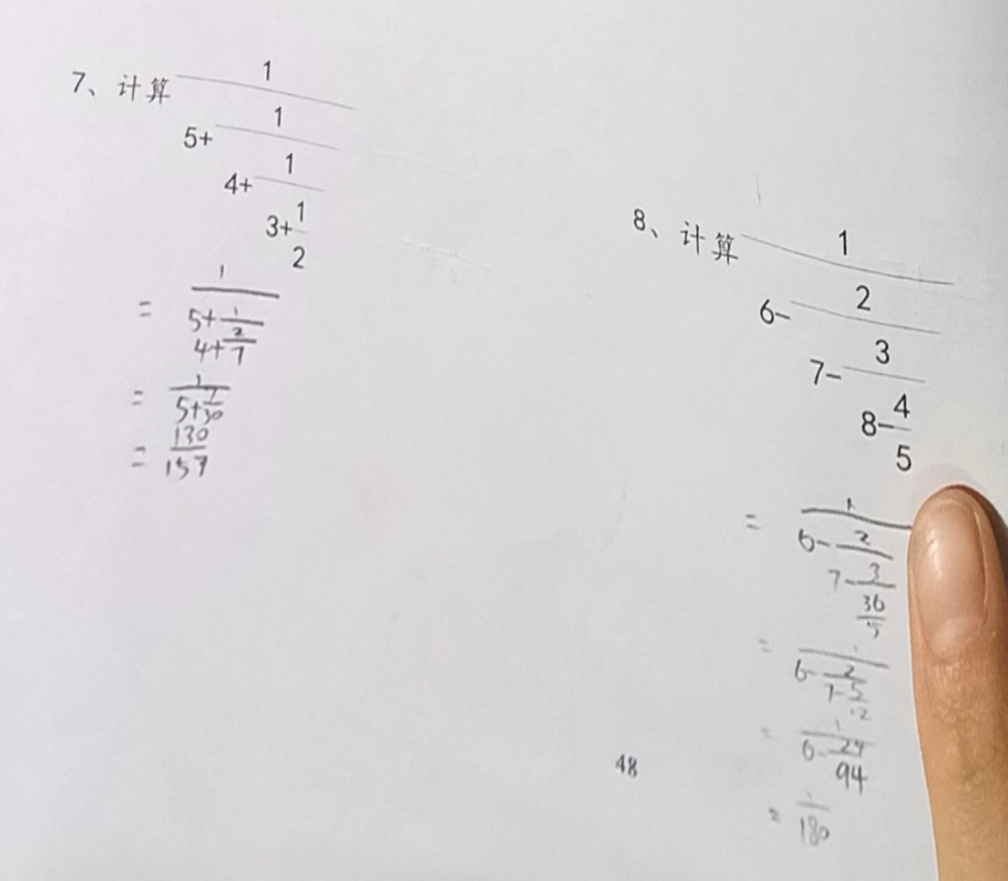 7、计算
1
1
5+
1
4+
1
3+
2
1
=
5+
1
2
4+
7
1
=
7
5+
30
130
=
157
8、计算
1
2
6-
3
7-
4
8-
5
1
=
6-
2
7-
3
36
5
1
=
6-
2
7-
5
12
1
=
6-
24
94
1
=
180
48